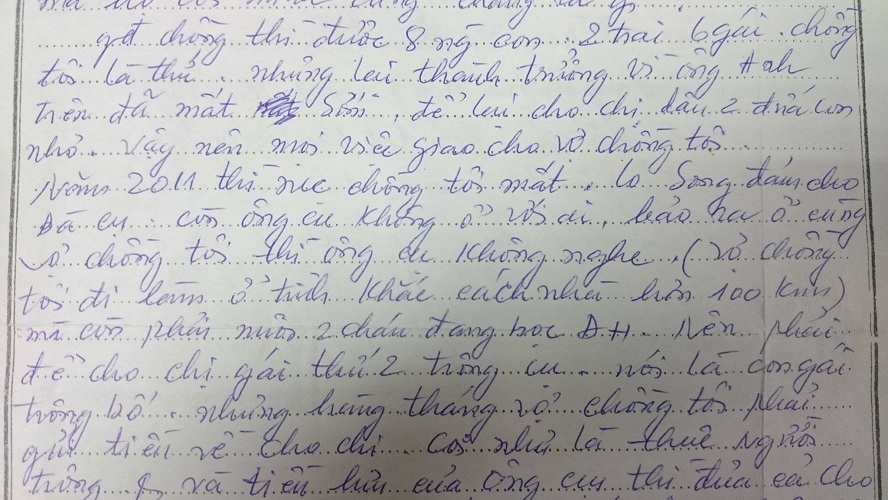 gđ chồng thì được 8 ng con. 2 trai 6 gái. chồng
tôi là thứ. nhưng lại thành trưởng vì ông Anh
trên đã mất sớm, để lại cho chị dâu 2 đứa con
nhỏ. Vậy nên mọi việc giao cho vợ chồng tôi.
Năm 2011 thì mẹ chồng tôi mất. lo song đám cho
Bà cụ. còn ông cụ không ở với ai, bảo ra ở cùng
vợ chồng tôi thì ông cụ không nghe. (vợ chồng
tôi đi làm ở tỉnh khác cách nhà hơn 100 km)
mà còn phải nuôi 2 cháu đang học ĐH. Nên phải
để cho chị gái thứ 2 trông cụ. nói là con gái
trông bố. nhưng hàng tháng vợ chồng tôi phải
gửi tiền về cho chị. coi như là thuê người
trông và tiền lưu của ông cụ thì đưa cả cho